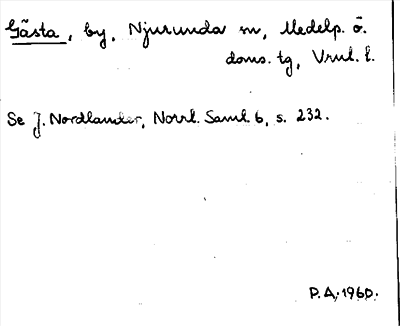 Gästa, by, Njurunda sn, Medelp. ö.
doms. tg, Vrnl. l.
Se J. Nordlander, Norrl. Saml. 6, s. 232.
P.A. 1960.